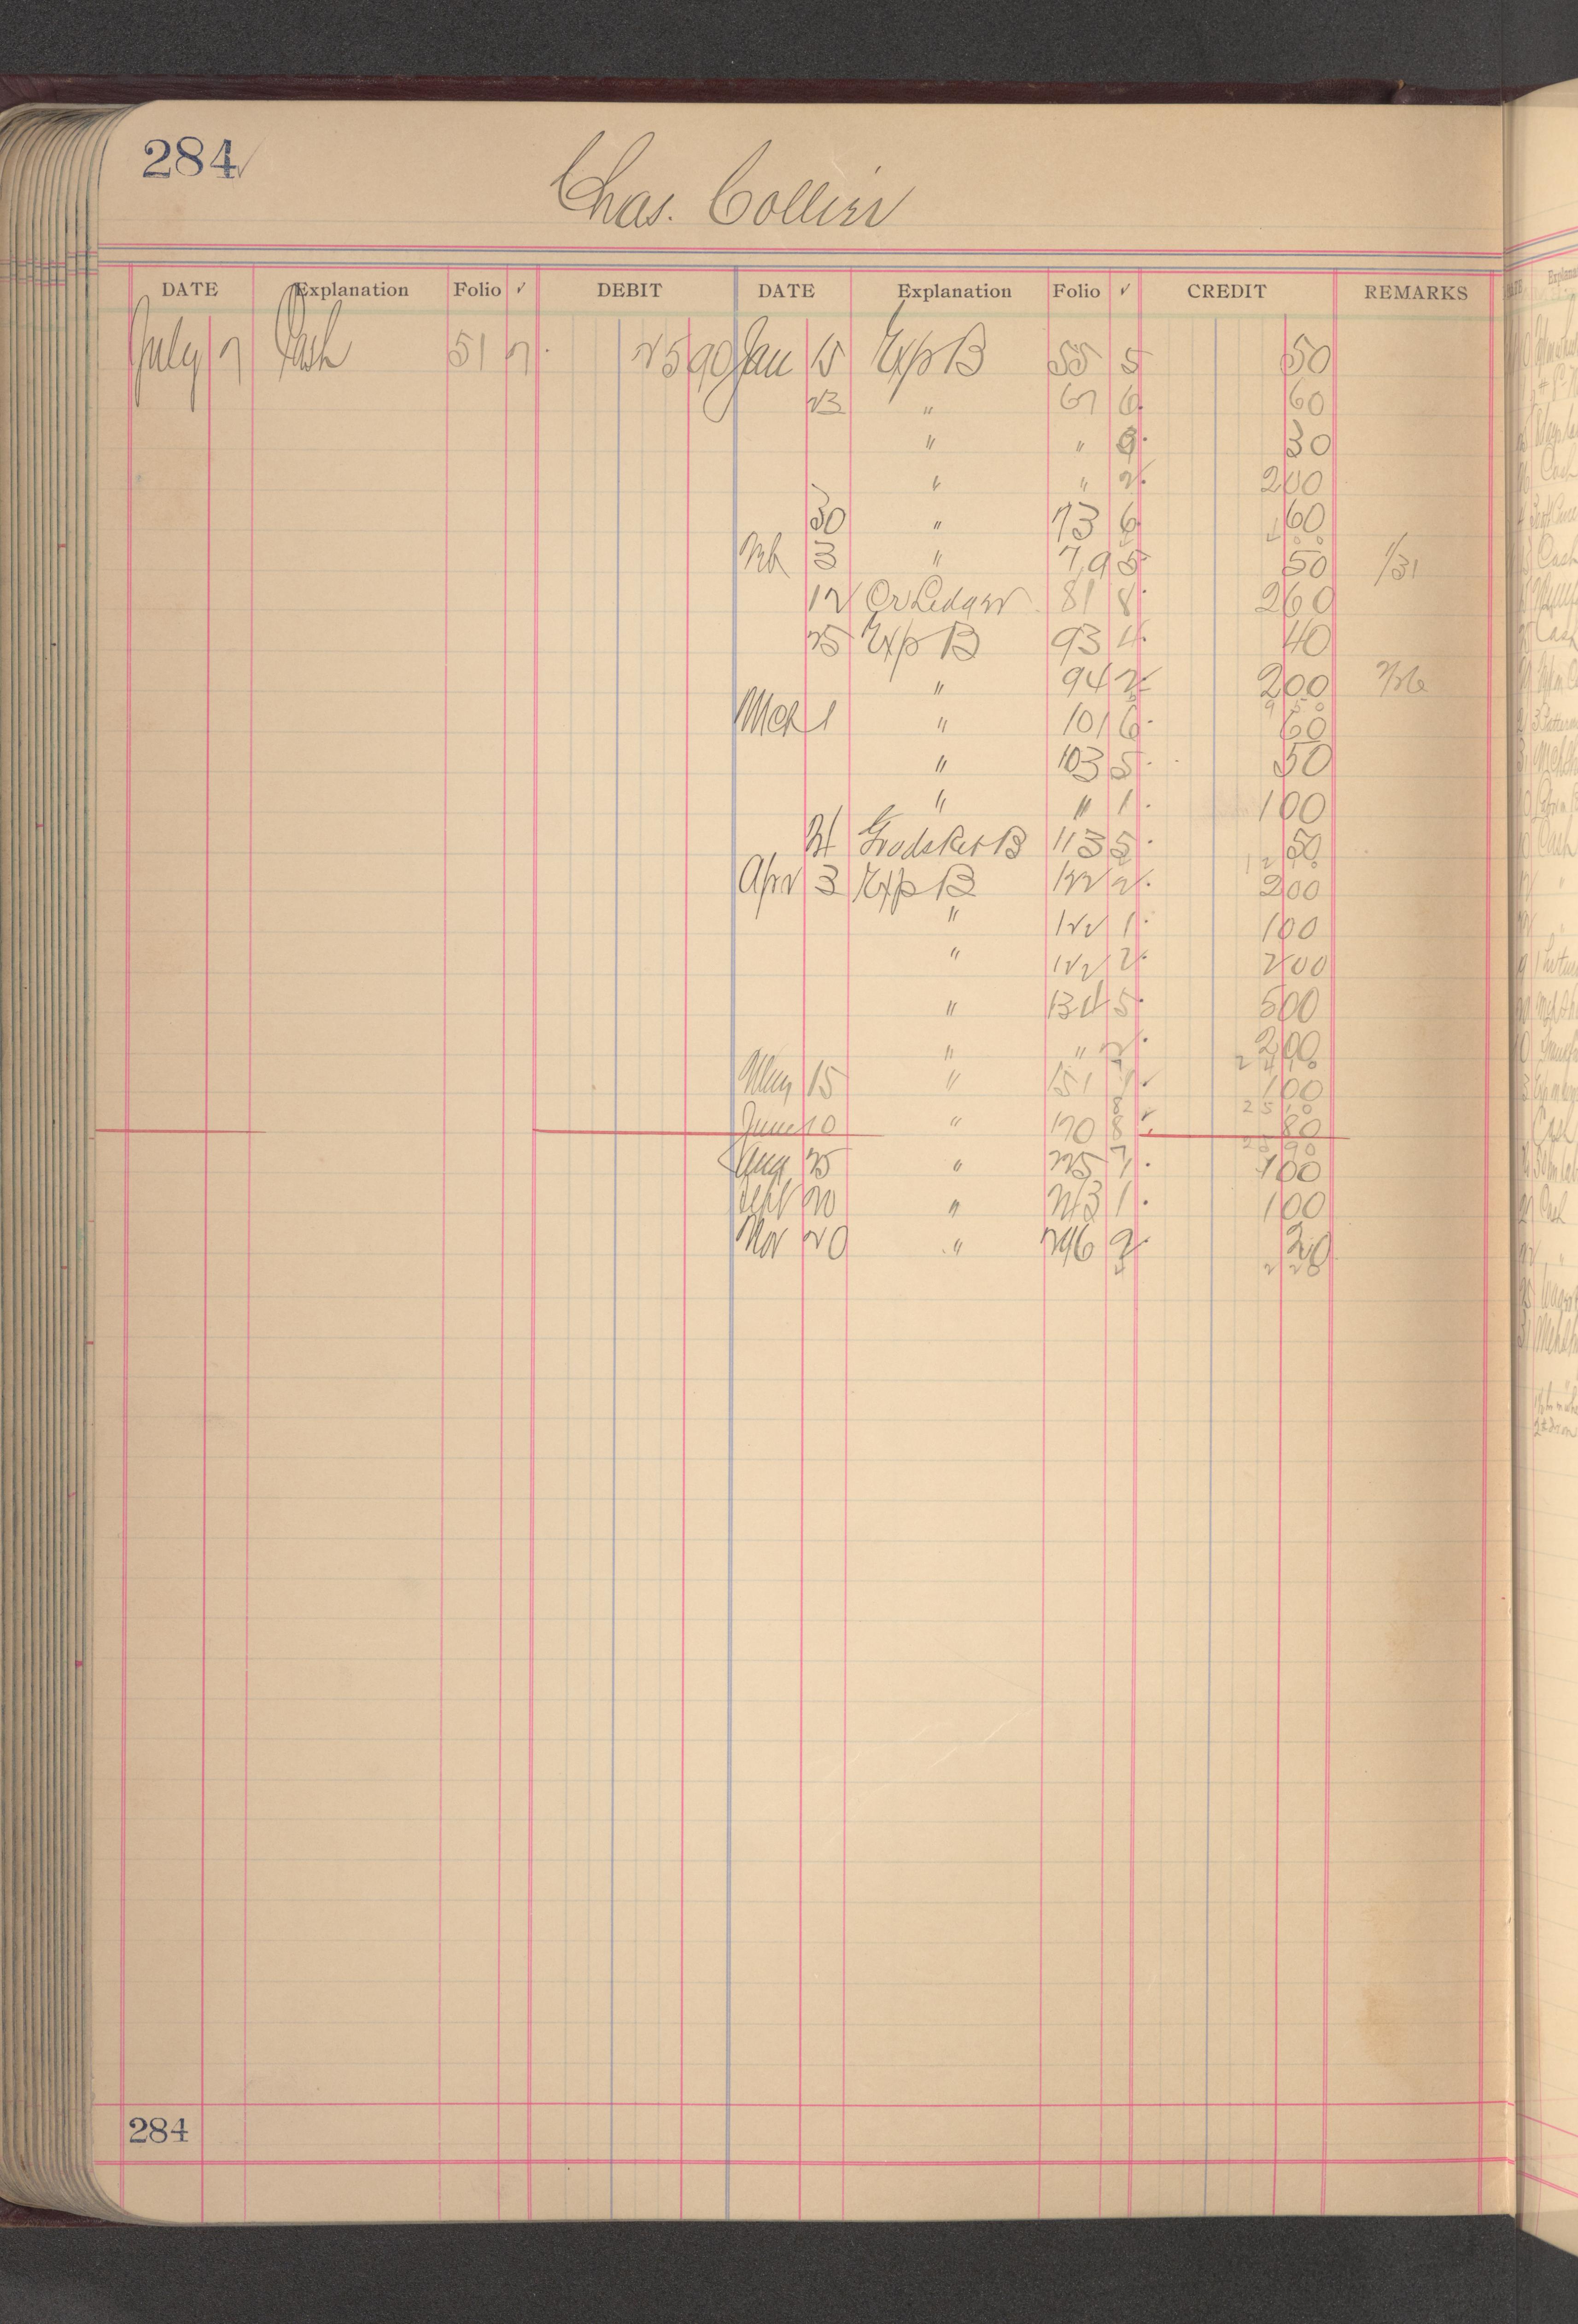 284
Chas. Collier
DATE Explanation Folio ✓ DEBIT DATE Explanation Folio ✓ CREDIT REMARKS
July 7 Cash 51 7. 25 90 Jan 15 Exp B 55 5 50
23 " 67 6. 60
" " 9. 30
" " 2. 2 00
30 " 73 6 60
Feb 3 " 79 5 50 1/31
12 Or Ledger 81 8. 2 60
25 Exp B 93 4. 40
" 94 2 2 00 2/26
9 50
Mch 1 " 101 6. 60
" 103 5. 50
" " 1. 1 00
24 B 113 5. 50
Apr 3 Exp B 122 2. 2 00
" 122 1. 1 00
" 122 2. 2 00
" 134 5. 5 00
" " 2. 2 00
May 15 " 151 1. 1 00
25 10
June 10 " 170 8 80
25 90
Aug 25 " 225 1. 1 00
Sept 20 " 243 1. 1 00
Nov 20 " 296 2. 20
2 20
284